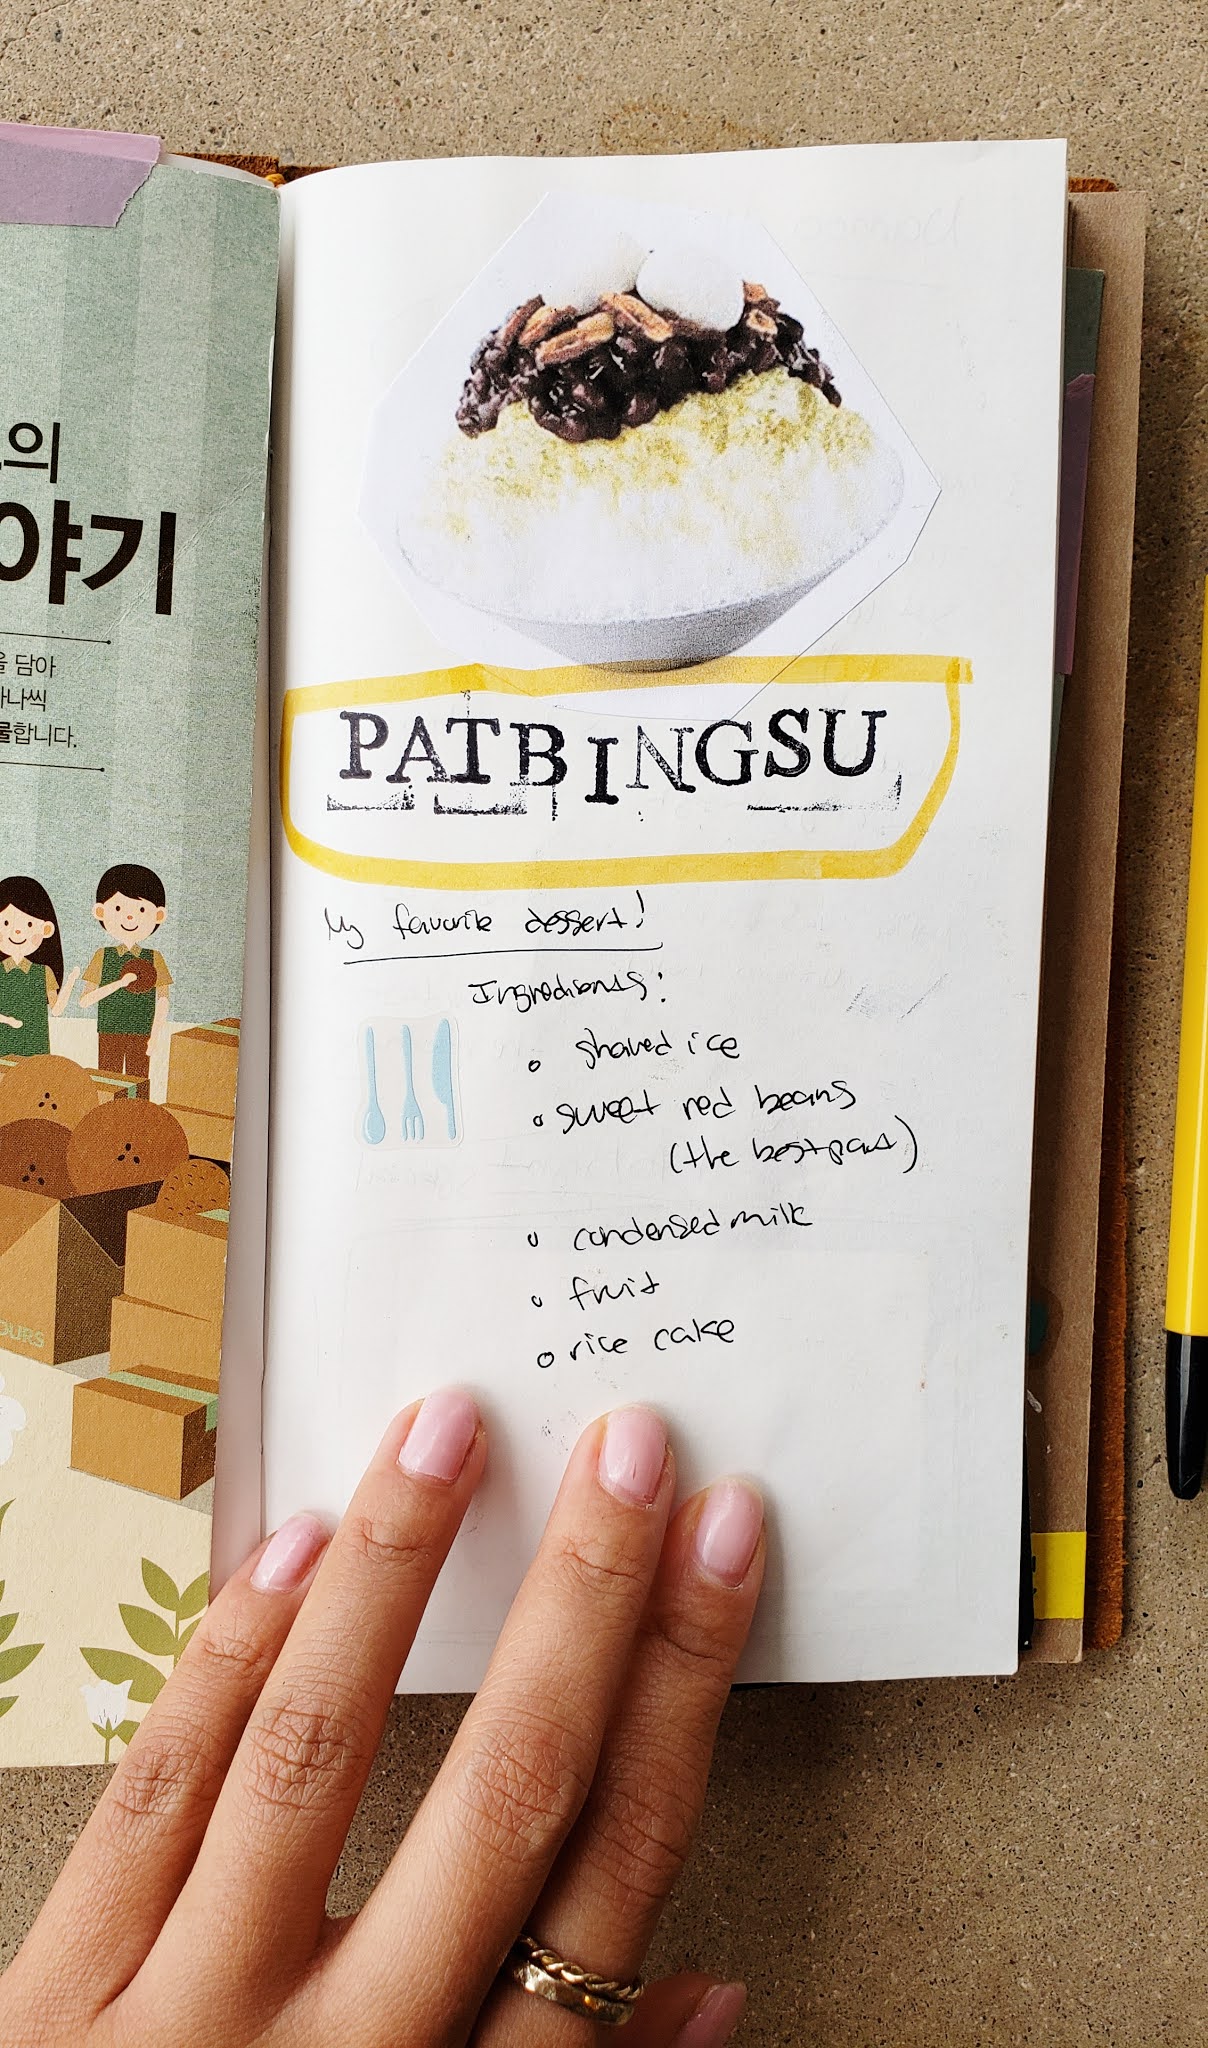 의
야기
을 담아
나씩
합니다.
OURS
PATBINGSU
My favorite dessert!
Ingredients:
shared ice
sweet red beans
(the best part)
condensed milk
fruit
rice cake